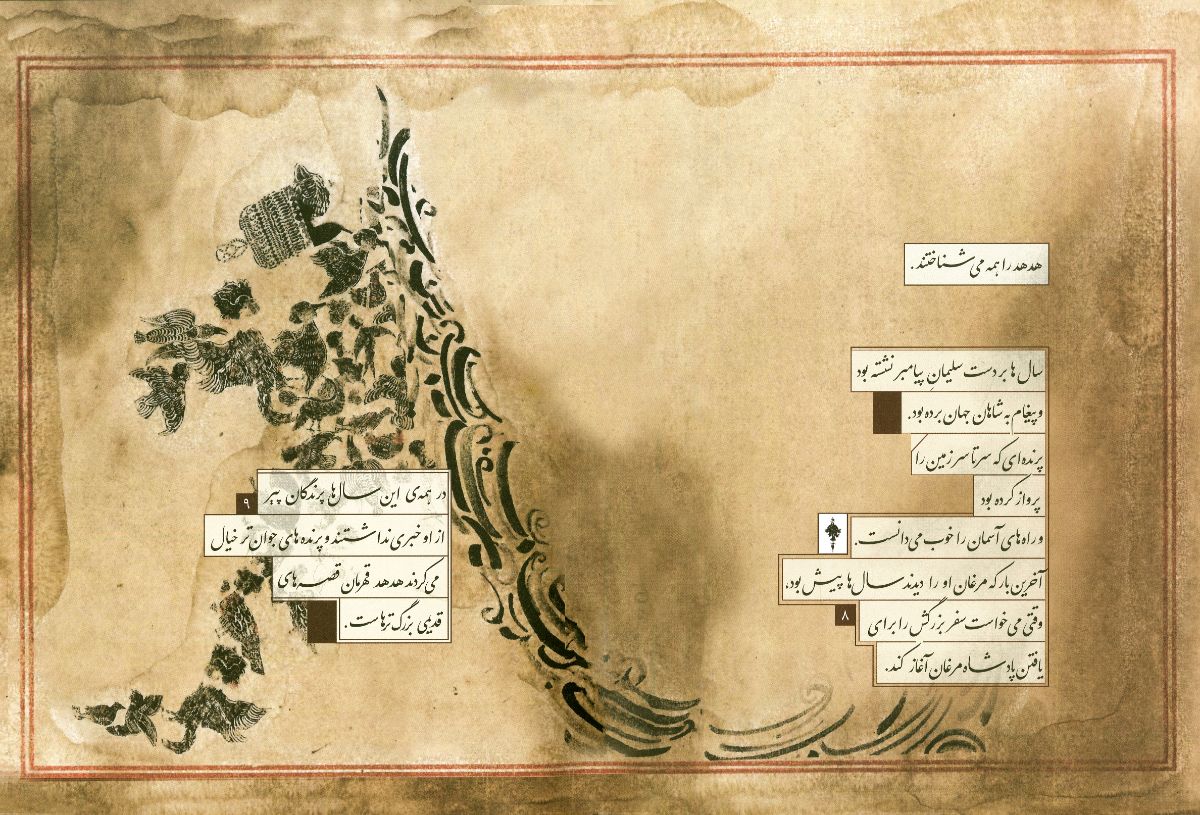 هدهد را همه می‌شناختند.
سال‌ها بر دست سلیمانِ پیامبر نشسته بود
و پیغام به شاهان جهان برده بود.
پرنده‌ای که سرتاسر زمین را
پرواز کرده بود
و راه‌های آسمان را خوب می‌دانست.
آخرین بار که مرغان او را دیدند سال‌ها پیش بود،
وقتی می‌خواست سفر بزرگش را برای
یافتن پادشاه مرغان آغاز کند.
۸
در همه‌ی این سال‌ها پرندگان پیر
از او خبری نداشتند و پرنده‌های جوان‌تر خیال
می‌کردند هدهد قهرمان قصه‌های
قدیمی بزرگ‌ترهاست.
۹